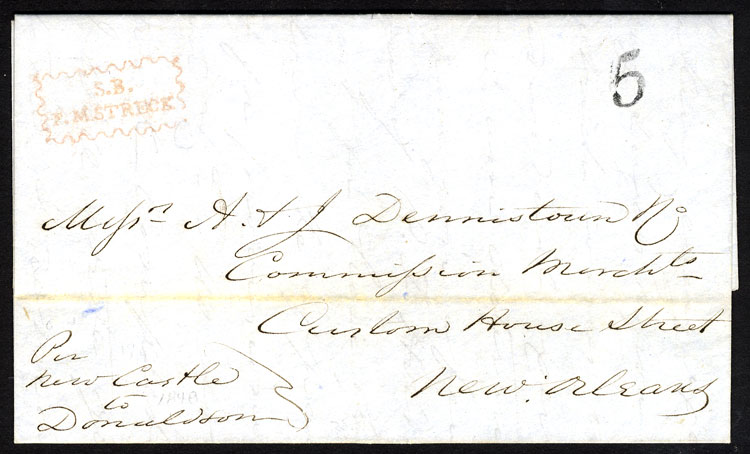 S.B.
F.M.STRECK
5
Messrs A. & J Dennistown & Co
Commission Merchts
Custom House Street
New Orleans
Per
New Castle
to
Donaldson